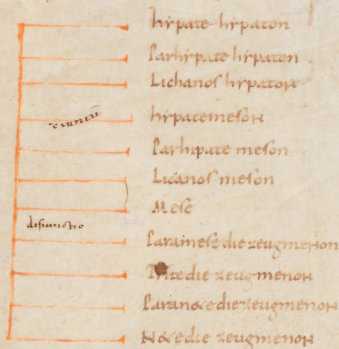 hẏpate hẏpaton
Parhẏpate hẏpaton
Lichanos hẏpaton
hẏpate meson
ɔiunctū
Parhipate meson
Licanos meson
Mese
disiunctio
Paramese diezeugmenon
Trite die zeugmenon
Paran&e diezeugmenon
N&e die zeugmenon